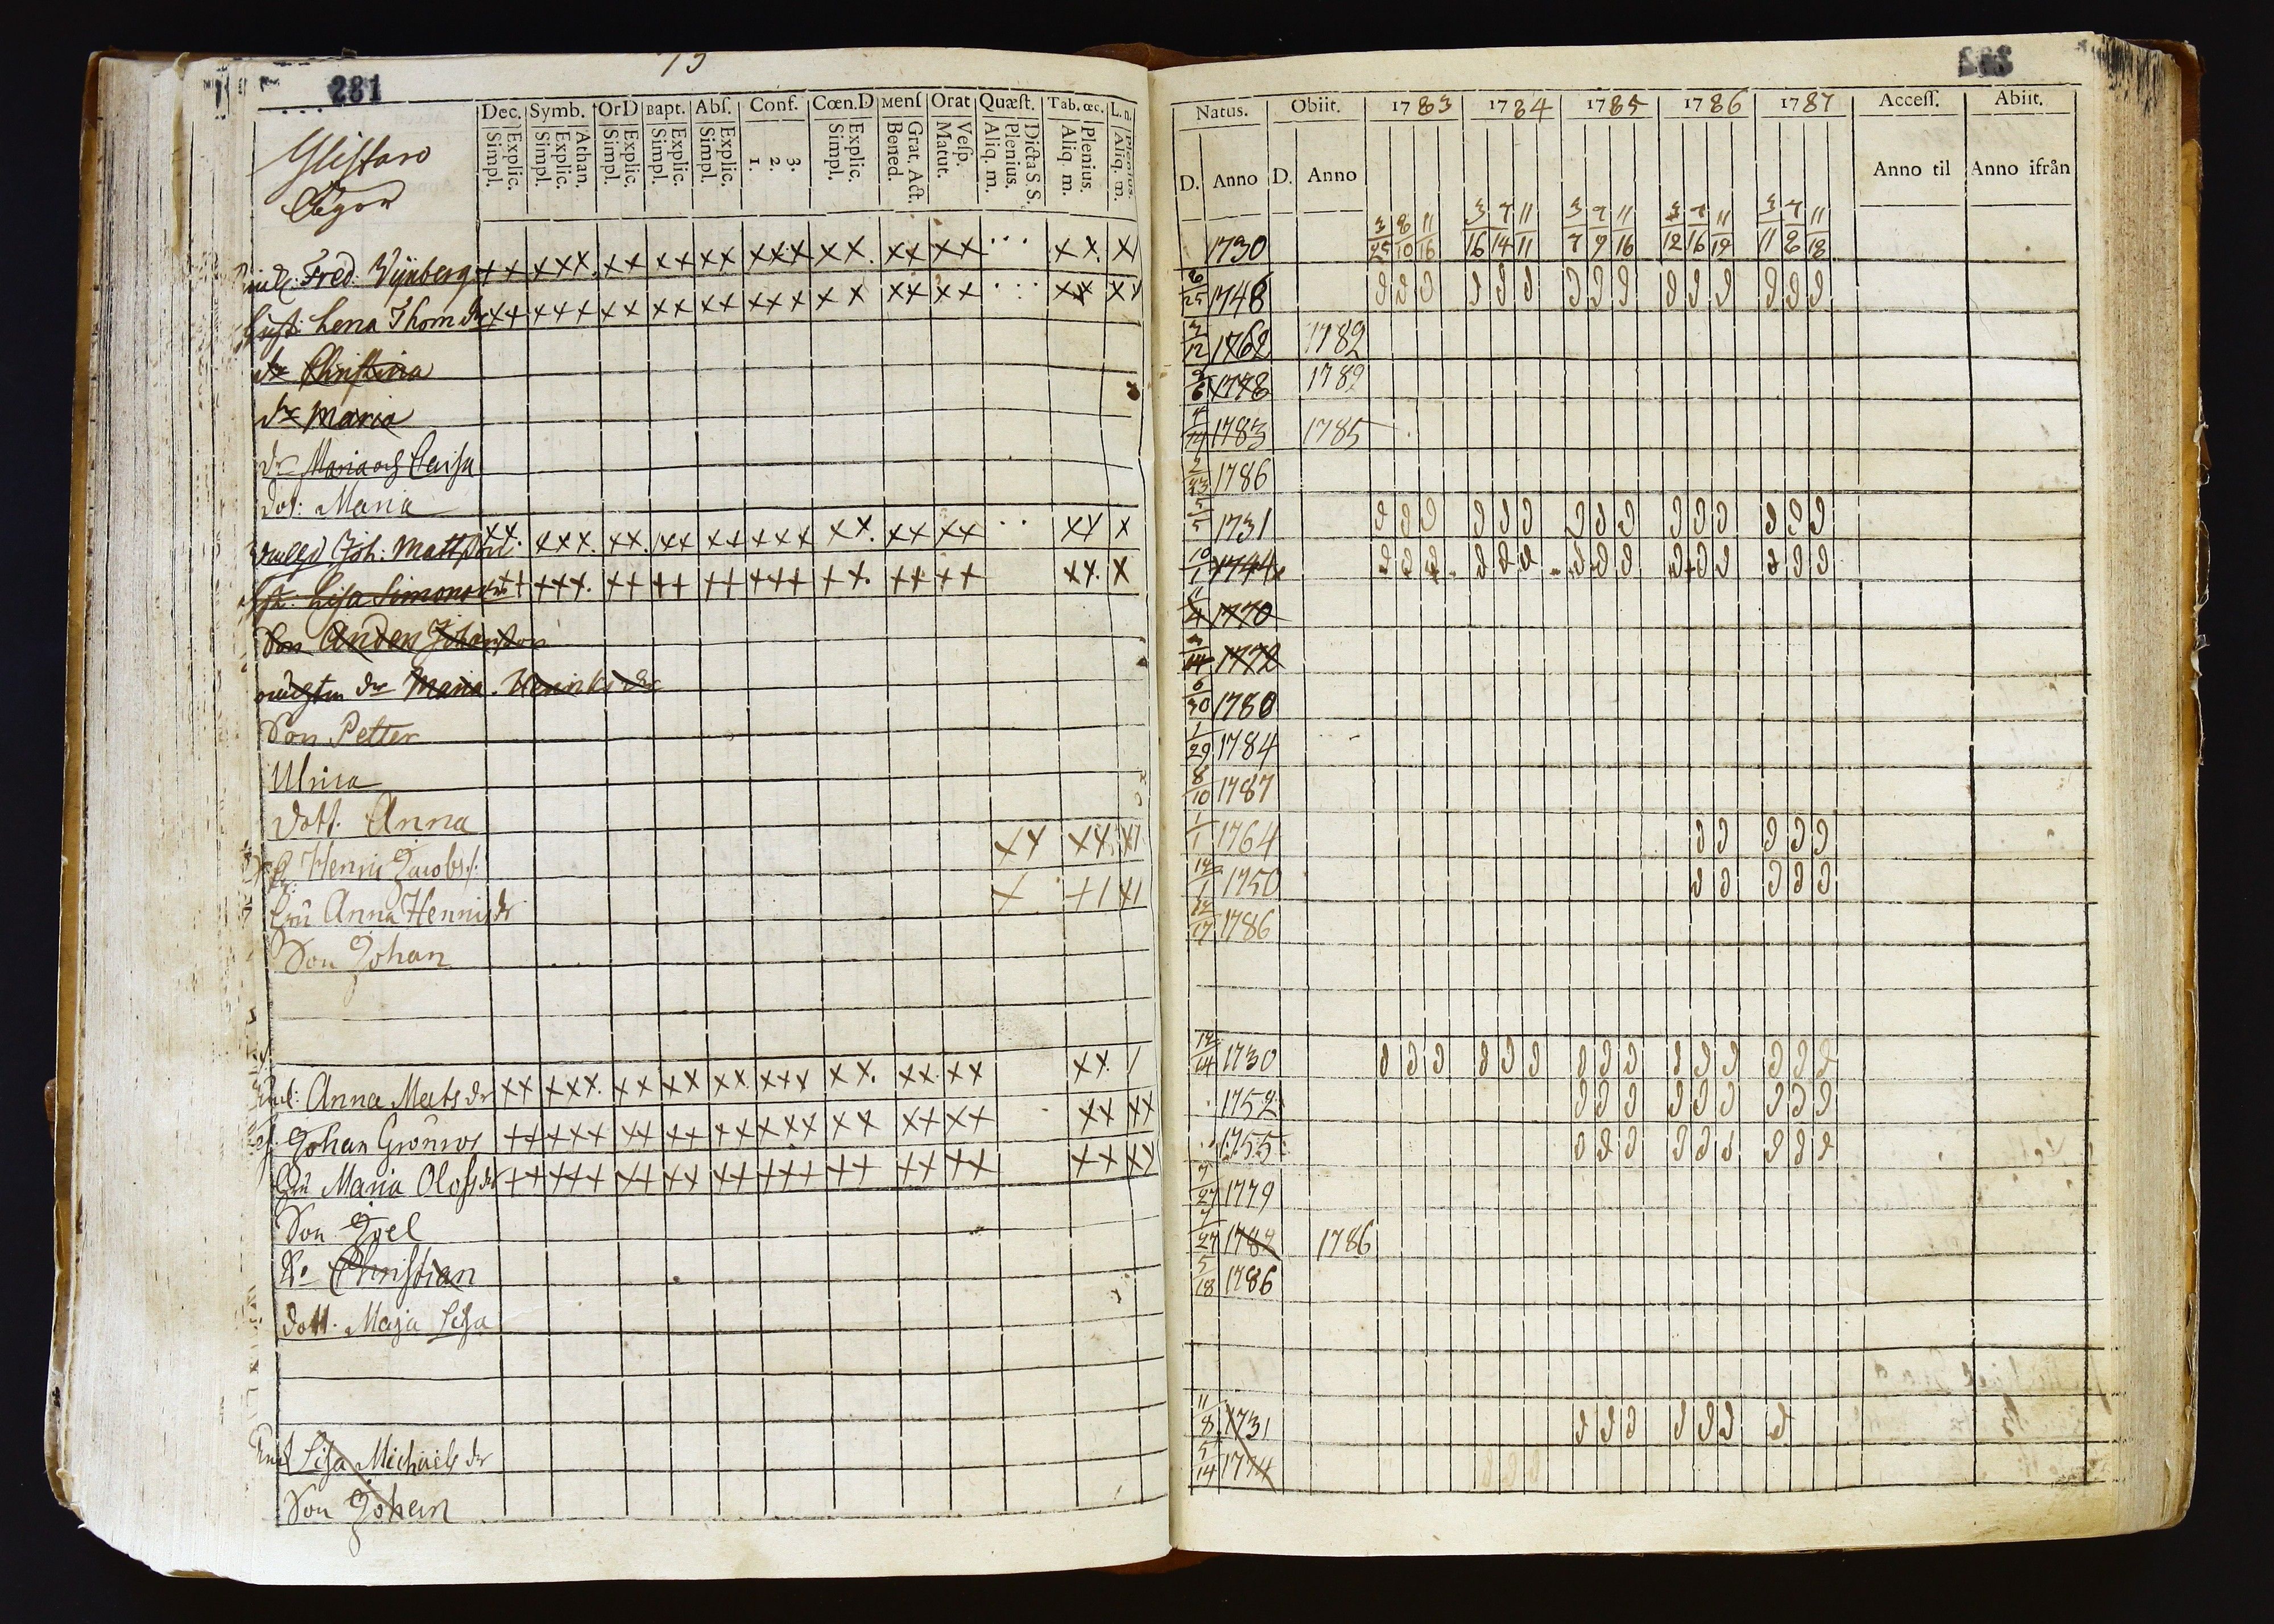 281
Dec. Symb. OrD Bapt. Abſ. Conf. Cœn.D Menſ Orat Quæſt. Tab. œc. L. n.
Explic. Simpl. Athan. Explic. Simpl. Explic. Simpl. Explic. Simpl. Explic. Simpl. 3. 2. 1. Explic. Simpl. Grat. Act. Bened. Veſp. Matut. Dicta S.S. Plenius. Aliq. m. Plenius. Aliq. m. Plenius. Aliq. m.
Fred. Wijnberg xx xxx xx xx xx xxx xx. xx xx xx. x
Hust: Lena Thom dr xx xxx xx xx xx xxx xx xx xx xx xx
dr Christina
dr Maria
dr Maria och Caisa
dot: Maria
Joh: Mattsson xx. xxx. xx. xx xx xxx xx. xx xx xx x
Lisa Simons dr xxx. xx xx xx xxx xx. xx xx xx. x
Son Anders Johanson
dr Maria Henriks dr
Son Petter
Ulrica
dott. Anna xx xx x
Henric Jacobs:
Hru Anna Henrics dr
Son Johan
Enk: Anna Mats dr xx xxx. xx xx xx xxx xx. xx xx xx /
Johan Grönros xx xxx xx xx xx xxx xx xx xx xx xx
Hru Maria Olofs dr xx xxx xx xx xx xxx xx xx xx xx xx
Son Joel
So Christian
dott. Maja Lisa
Enk Lisa Michaels dr
Son Johan
Natus. Obiit. 1783 1784 1785 1786 1787 Acceſſ. Abiit.
D. Anno D. Anno Anno til Anno ifrån
3/25 8/10 11/16 3/16 7/14 11/11 3/7 7/9 11/16 3/12 7/16 11/12 3/11 7/8 11/18
1730
6/25 1748
3/12 1762 1782
2/6 1778 1782
4/14 1783 1785
2/23 1786
3/5 1731
10/1 1744
11/4 1770
3/14 1772
6/30 1780
1/29 1784
8/10 1787
1/1 1764
12/1 1750
12/17 1786
12/14 1730
1752
1755
9/27 1779
7/27 1782 1786
5/18 1786
11/8 1731
5/14 1774